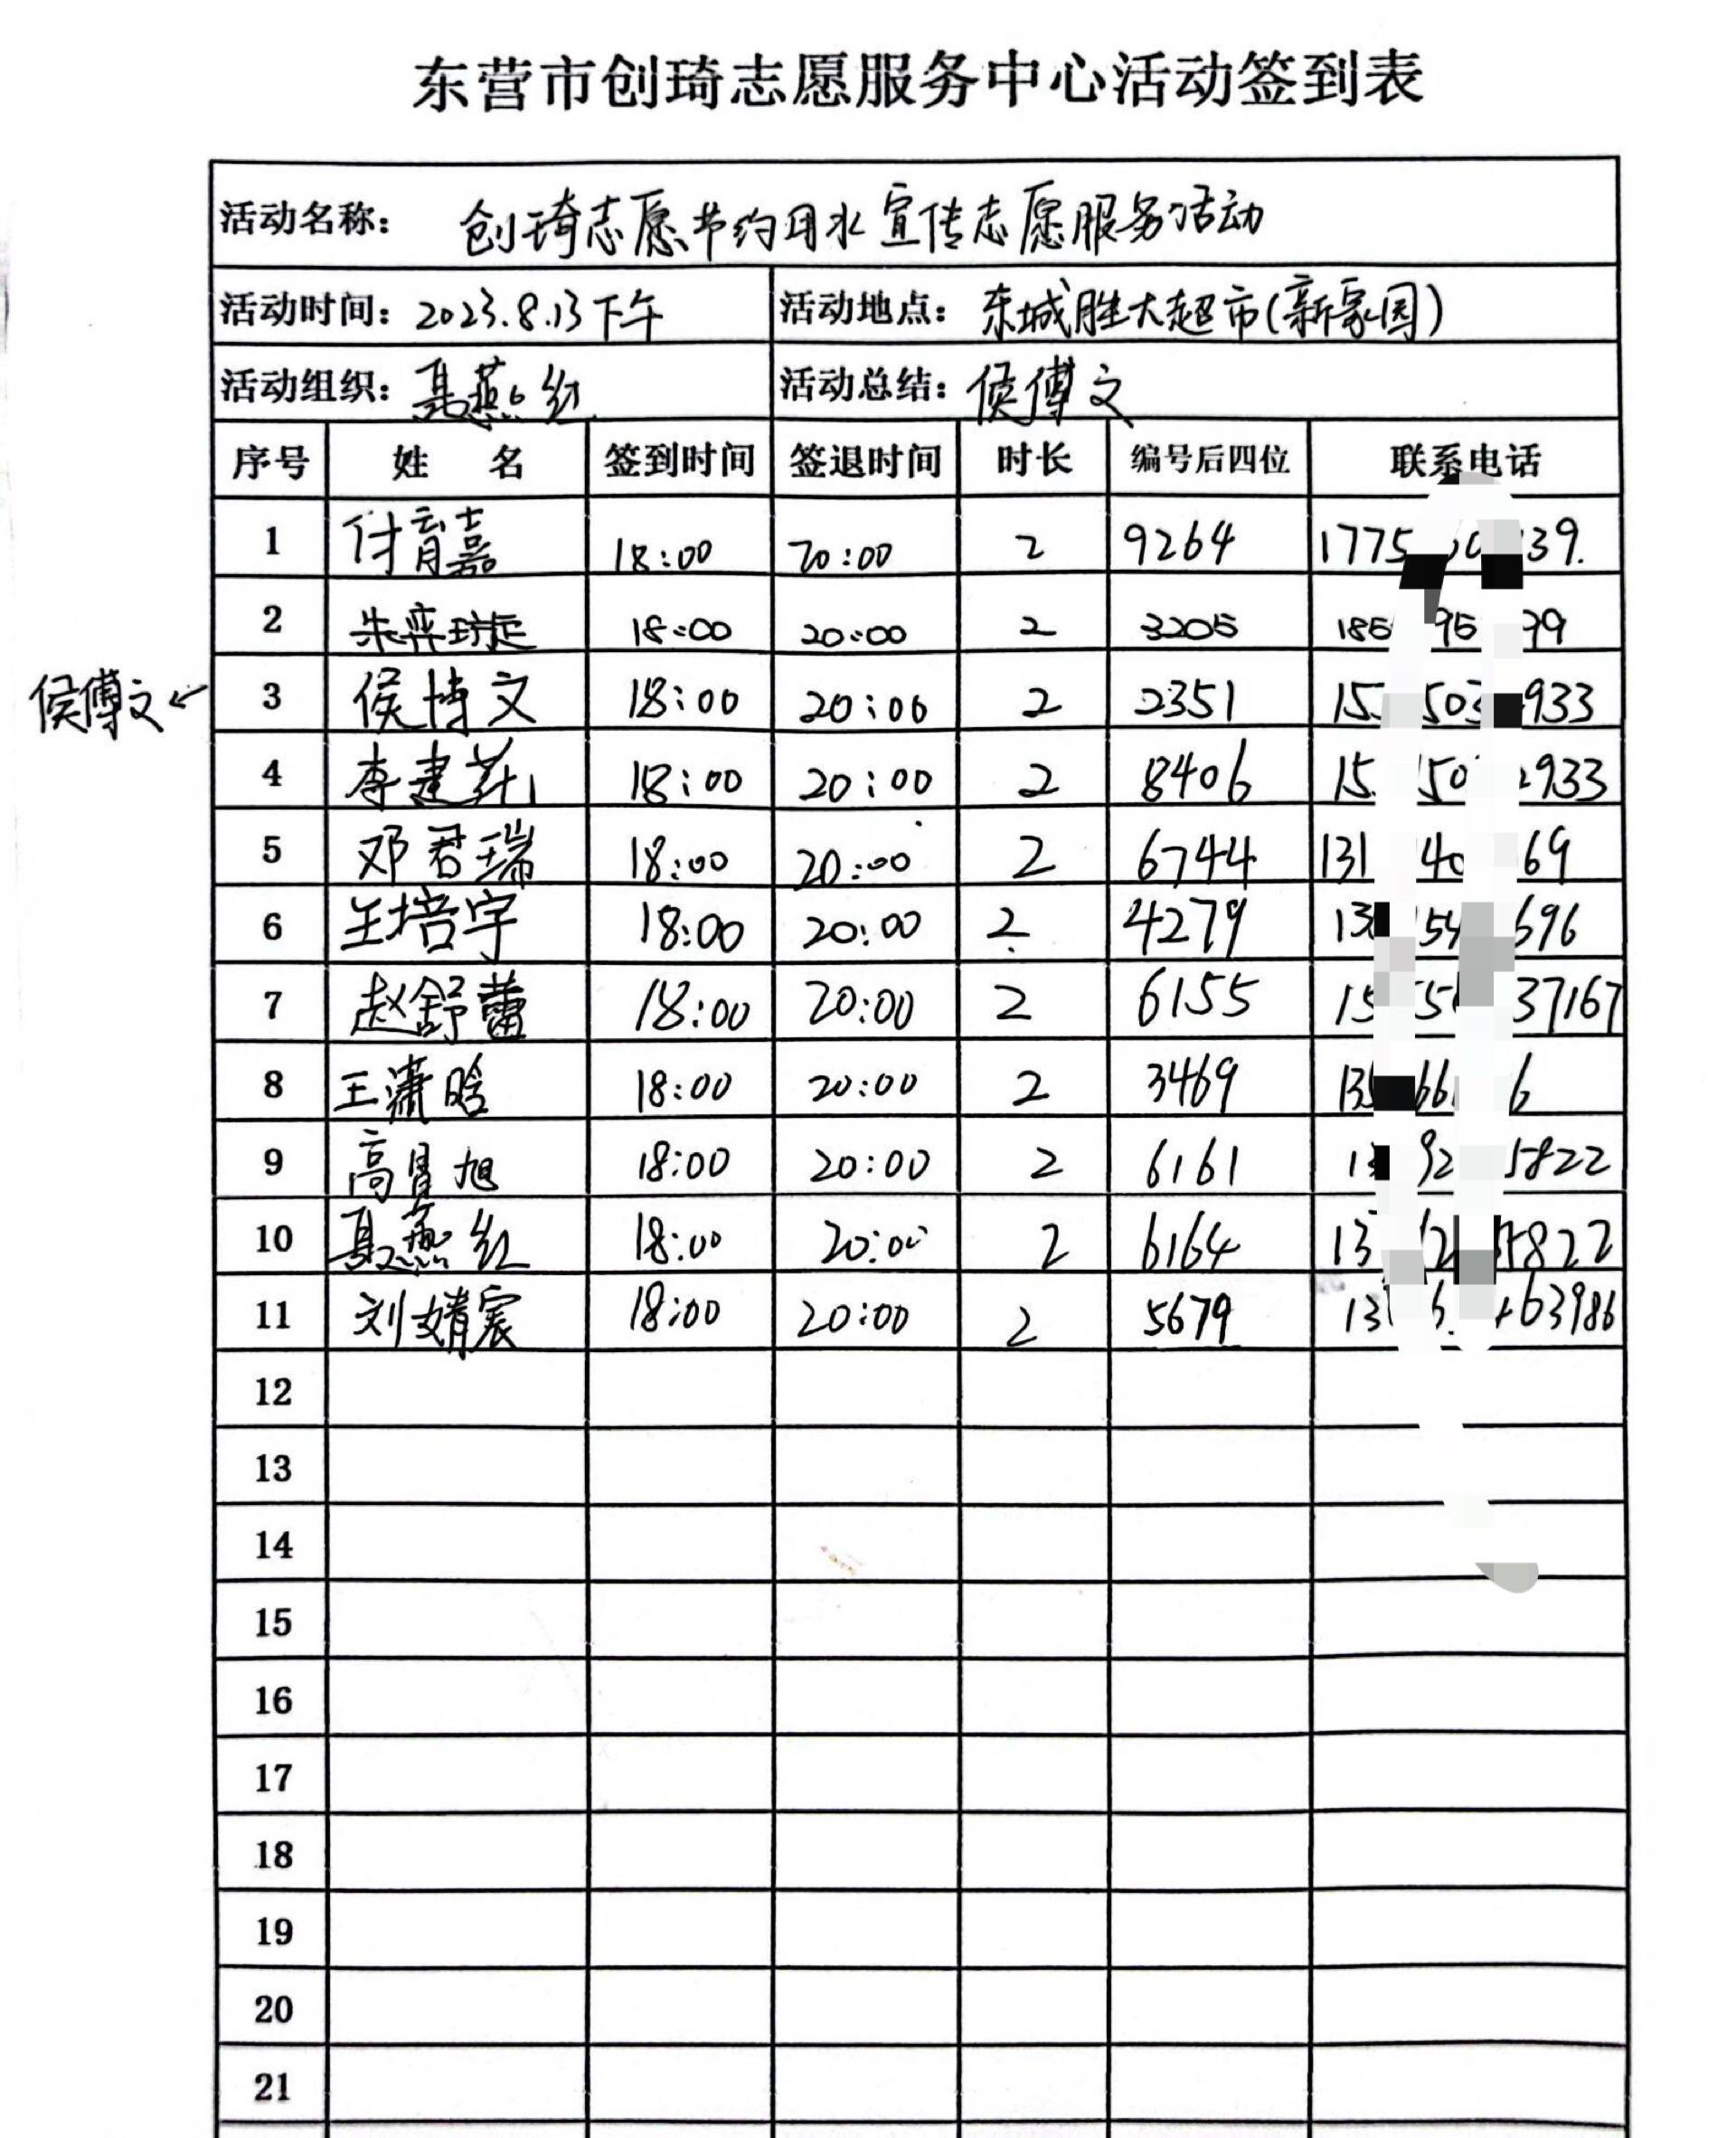 东营市创琦志愿服务中心活动签到表
活动名称： 创琦志愿节约用水宣传志愿服务活动
活动时间：2023.8.13下午 活动地点：东城胜大超市(新家园)
活动组织：聂燕红 活动总结：侯傅文
序号 姓 名 签到时间 签退时间 时长 编号后四位 联系电话
1 付育嘉 18:00 20:00 2 9264 1775 39.
2 朱弈璇 18:00 20:00 2 3205 185 95 99
侯傅文← 3 侯博文 18:00 20:00 2 2351 15 503 933
4 李建 18:00 20:00 2 8406 15 50 2933
5 邓君瑞 18:00 20:00 2 6744 131 40 69
6 王培宇 18:00 20:00 2 4279 13 54 696
7 赵舒蕾 18:00 20:00 2 6155 15 5 37167
8 王潇晗 18:00 20:00 2 3469 13 66 6
9 高 旭 18:00 20:00 2 6161 1 92 5822
10 聂燕红 18:00 20:00 2 6164 13 2 5822
11 刘婧宸 18:00 20:00 2 5679 13 6 63986
12
13
14
15
16
17
18
19
20
21